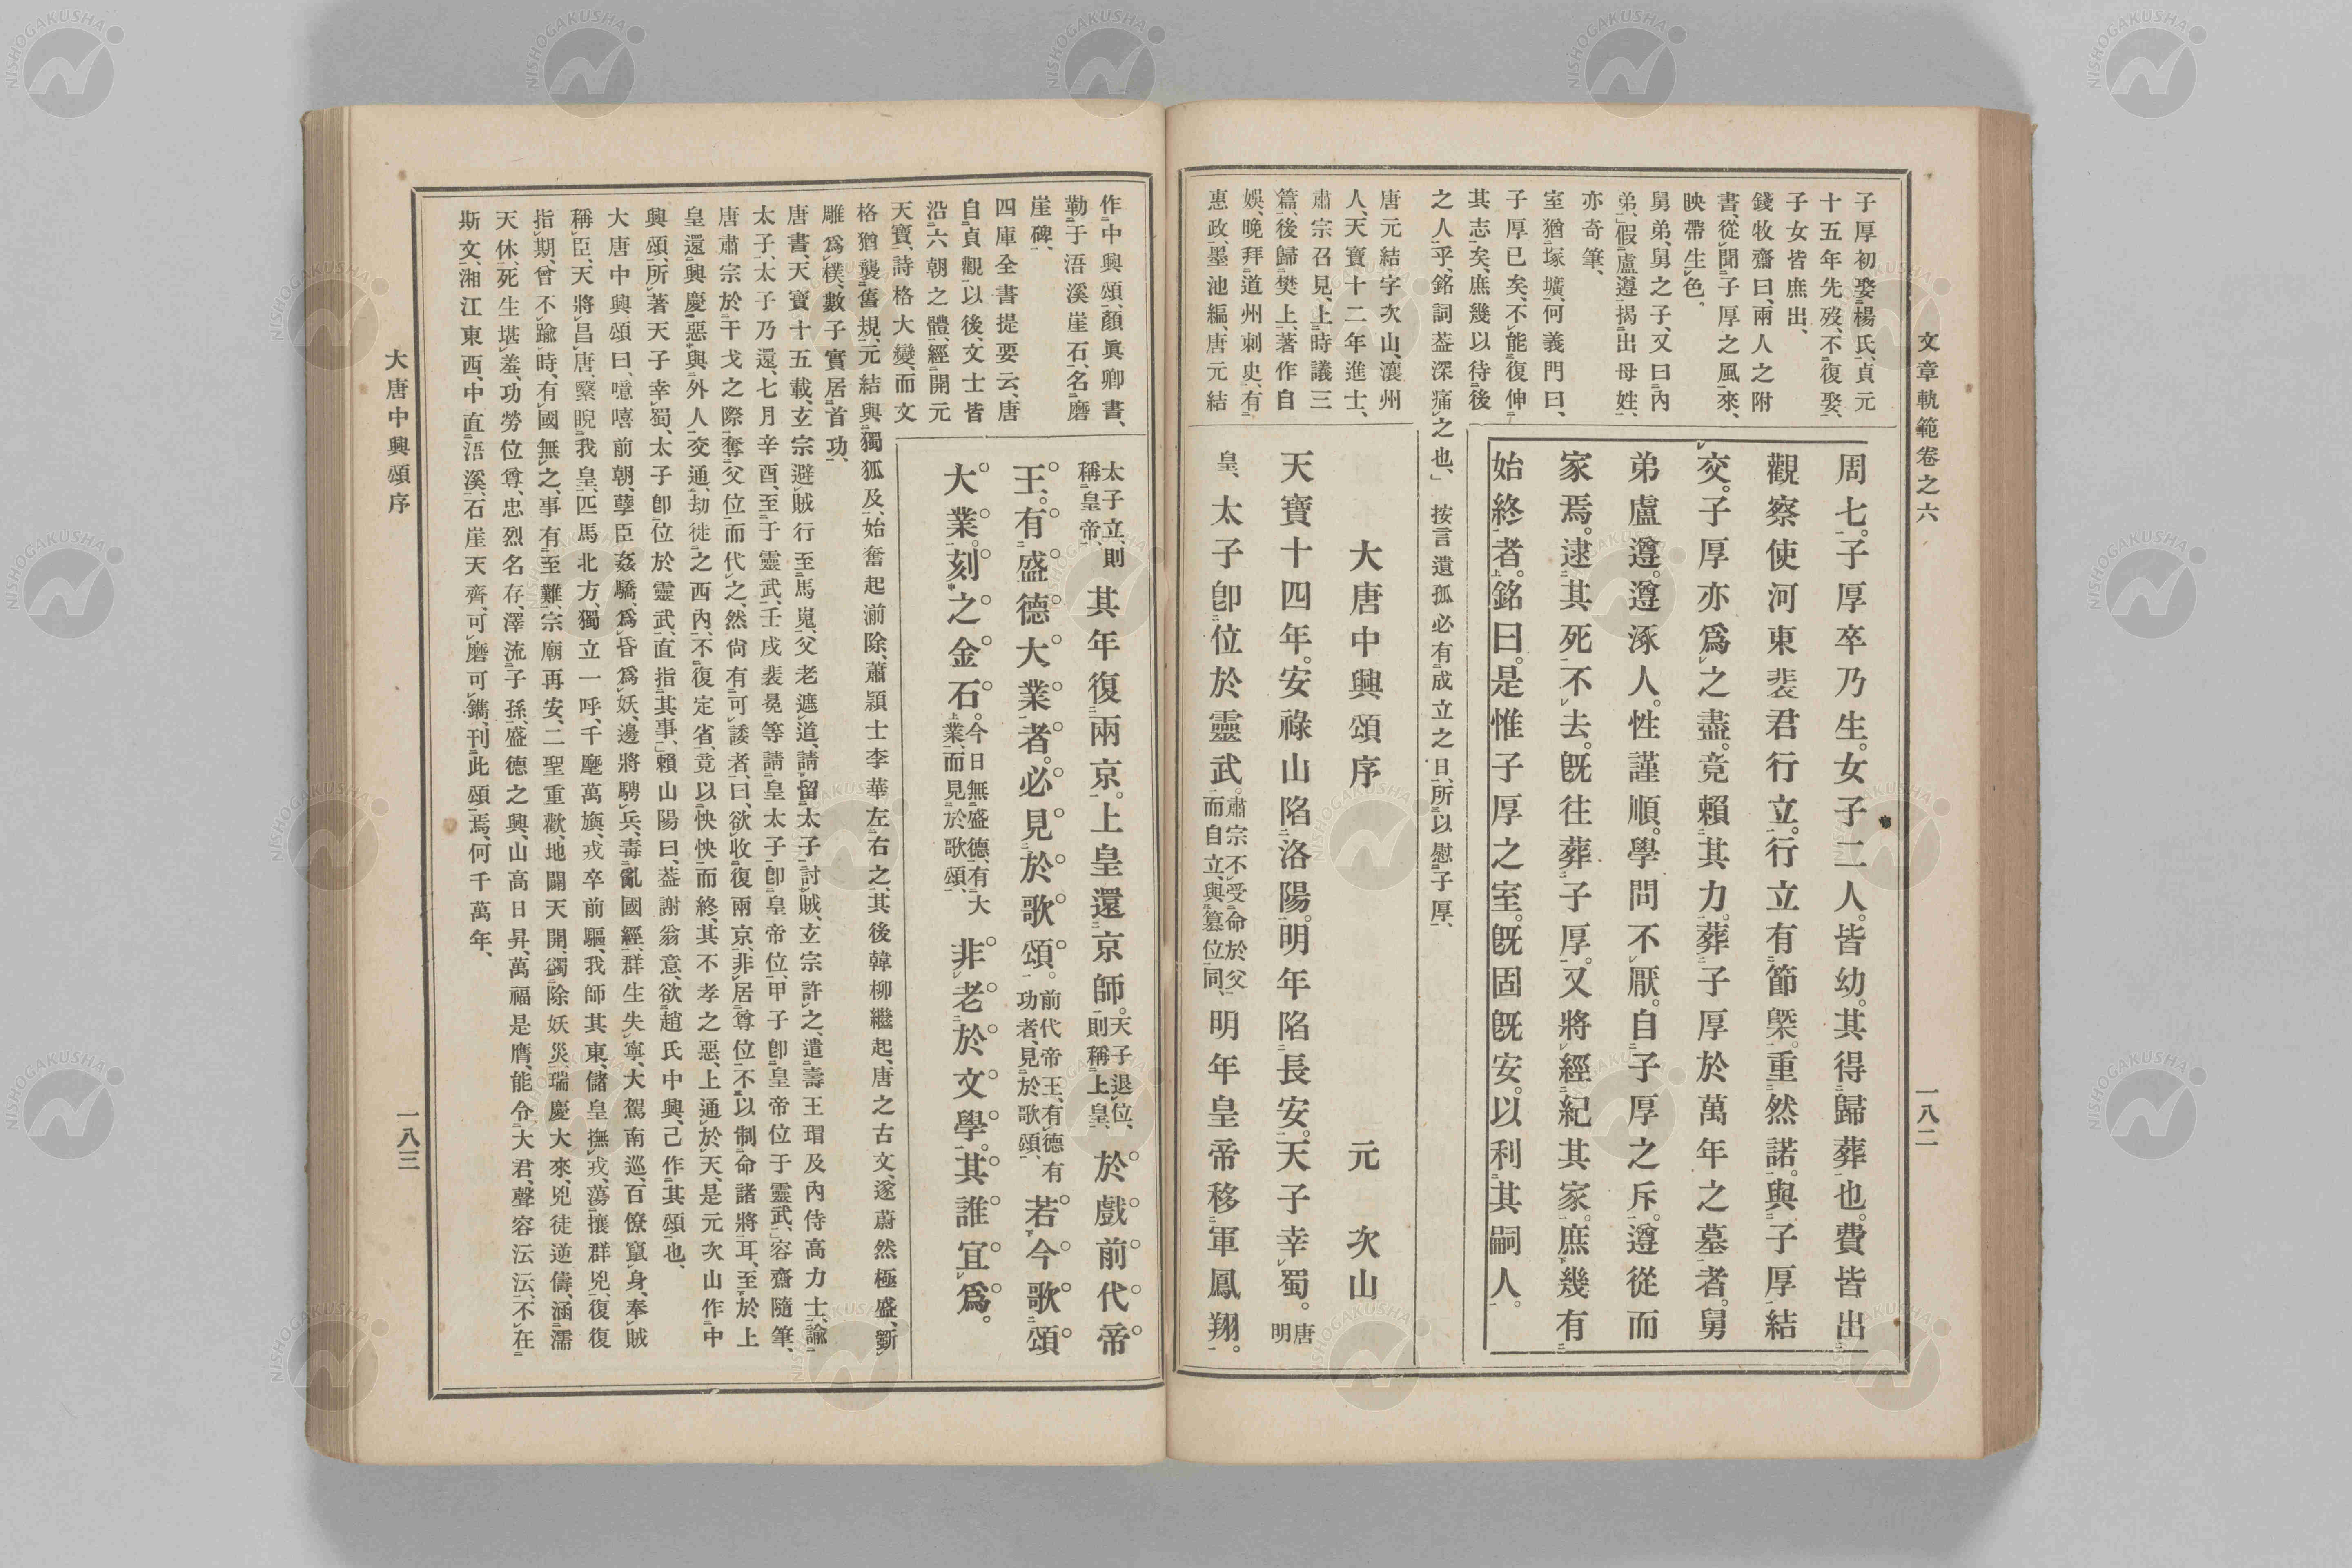 文章軌範卷之六
一八二
子厚初娶楊氏、貞元
十五年先歿、不復娶、
子女皆庶出、
錢牧齋曰、兩人之附
書、從聞子厚之風來、
映帶生色。
舅弟、舅之子、又曰內
弟、」假盧遵揭出母姓、
亦奇筆、
室猶塚壙、何義門曰、
子厚已矣、不能復伸
其志矣、庶幾以待後
之人乎、銘詞葢深痛之也、」按言遺孤必有成立之日、所以慰子厚、
周七。子厚卒乃生。女子二人。皆幼。其得歸葬也。費皆出
觀察使河東裴君行立。行立有節槩。重然諾。與子厚結
交。子厚亦爲之盡。竟賴其力。葬子厚於萬年之墓者。舅
弟盧遵。遵涿人。性謹順。學問不厭。自子厚之斥。遵從而
家焉。逮其死不去。旣往葬子厚。又將經紀其家。庶幾有
始終者。銘曰。是惟子厚之室。旣固旣安。以利其嗣人。
唐元結字次山、瀼州
人、天寶十二年進士、
肅宗召見、上時議三
篇、後歸樊上、著作自
娛、晚拜道州刺史、有
惠政、墨池編、唐元結
大唐中興頌序 元次山
天寶十四年。安祿山陷洛陽。明年陷長安。天子幸蜀。唐明
皇、太子卽位於靈武。肅宗不受命於父、而自立、與篡位同、明年皇帝移軍鳳翔。
作中興頌、顏眞卿書、
勒于浯溪崖石、名磨
崖碑、
四庫全書提要云、唐
自貞觀以後、文士皆
沿六朝之體、經開元
天寶、詩格大變、而文
格猶襲舊規、元結與獨狐及、始奮起湔除、蕭穎士李華左右之、其後韓柳繼起、唐之古文、遂蔚然極盛、斲
雕爲樸、數子實居首功、
太子立、則稱皇帝、其年復兩京。上皇還京師。天子退位、則稱上皇、於戲前代帝
王。有盛德大業者。必見於歌頌。前代帝王、有德有功者、見於歌頌、若今歌頌
大業。刻之金石。今日無盛德、有大業、而見於歌頌、非老於文學。其誰宜爲。
唐書、天寶十五載、玄宗避賊行至馬嵬、父老遮道、請留太子討賊、玄宗許之、遣壽王瑁及內侍高力士、諭
太子、太子乃還、七月辛酉、至于靈武、壬戌裴冕等請皇太子卽皇帝位、甲子卽皇帝位于靈武、」容齋隨筆、
唐肅宗於干戈之際、奪父位而代之、然尙有可諉者、曰、欲收復兩京、非居尊位、不以制命諸將耳、至於上
皇還興慶、惡與外人交通、劫徙之西內、不復定省、竟以怏怏而終、其不孝之惡、上通於天、是元次山作中
興頌、所著天子幸蜀、太子卽位於靈武、直指其事、」賴山陽曰、葢謝翁意、欲趙氏中興、己作其頌也、
大唐中興頌曰、噫嘻前朝、孽臣姦驕、爲昏爲妖、邊將騁兵、毒亂國經、群生失寧、大駕南巡、百僚竄身、奉賊
稱臣、天將昌唐、繄睨我皇、匹馬北方、獨立一呼、千麾萬旟、戎卒前驅、我師其東、儲皇撫戎、蕩攘群兇、復復
指期、曾不踰時、有國無之、事有至難、宗廟再安、二聖重歡、地闢天開、蠲除妖災、瑞慶大來、兇徒逆儔、涵濡
天休、死生堪羞、功勞位尊、忠烈名存、澤流子孫、盛德之興、山高日昇、萬福是膺、能令大君、聲容沄沄、不在
斯文、湘江東西、中直浯溪、石崖天齊、可磨可鐫、刊此頌焉、何千萬年、
大唐中興頌序
一八三